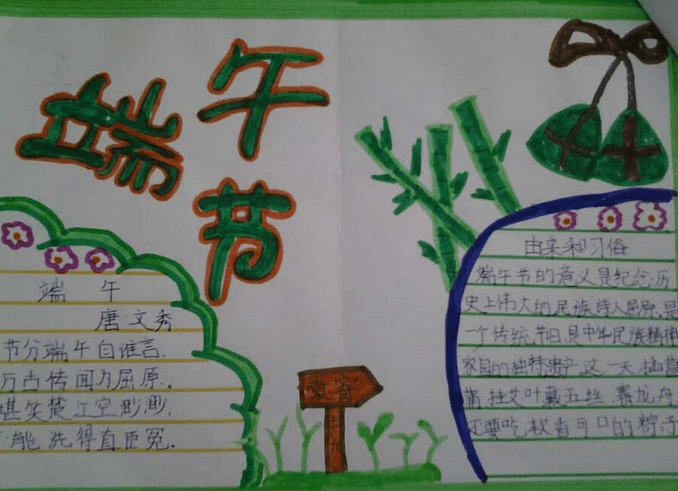 端午节
端 午
唐 文秀
节分端午自谁言,
万古传闻为屈原。
堪笑楚江空渺渺,
能洗得直臣冤。
由来和习俗
端午节的意义是纪念历
史上伟大的民族诗人屈原.是
一个传统节日.是中华民族精神
家园的独特遗产.这一天插菖
蒲.挂艾叶戴五丝.赛龙舟
还要吃软香可口的粽子